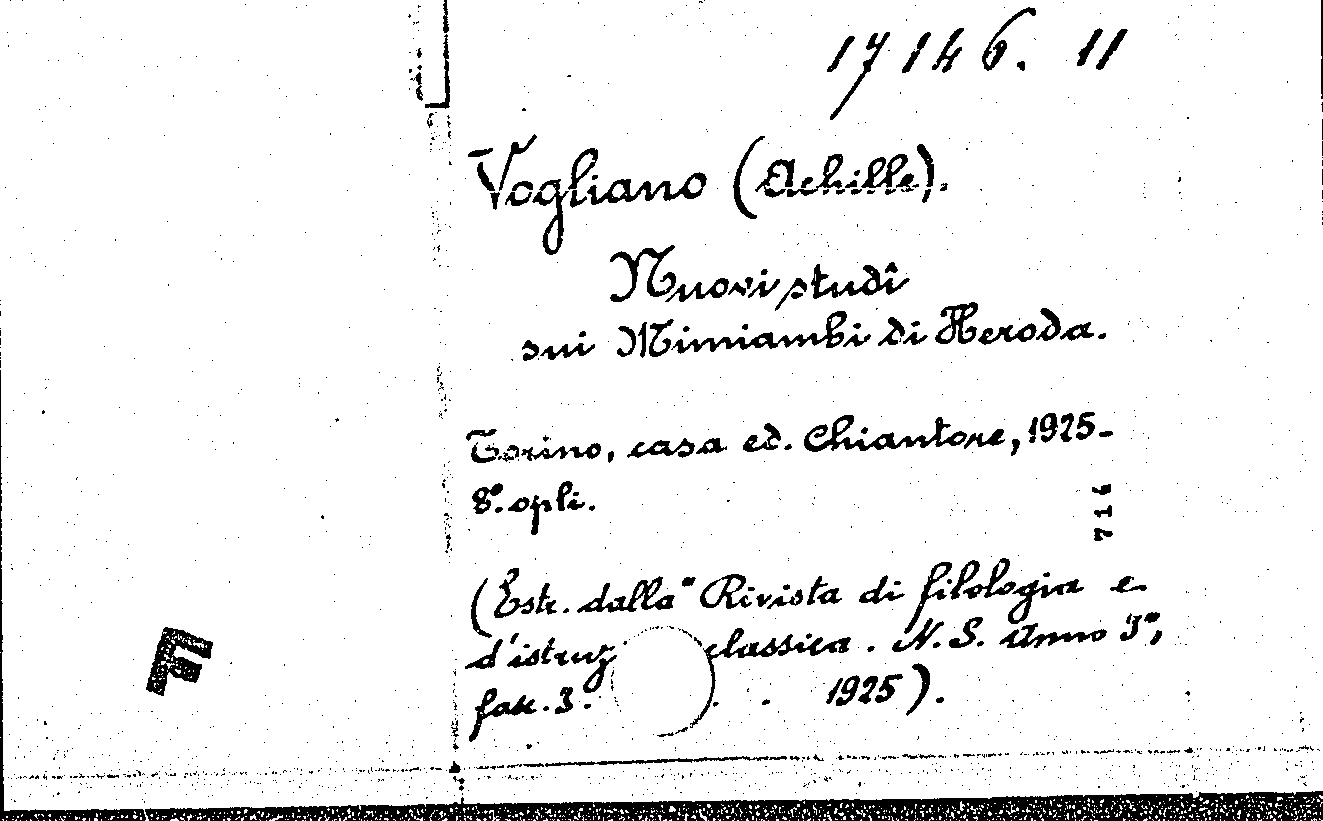 17146. 11
Vogliano (Achille).
Nuovi studî
sui Mimiambi di Heroda.
Torino, casa ed. Chiantore, 1925-
8º. opli.
716
(Estr. dalla "Rivista di filologia e
d'istruz classica. N. S. Anno 3º,
fasc. 3. . . 1925).
F